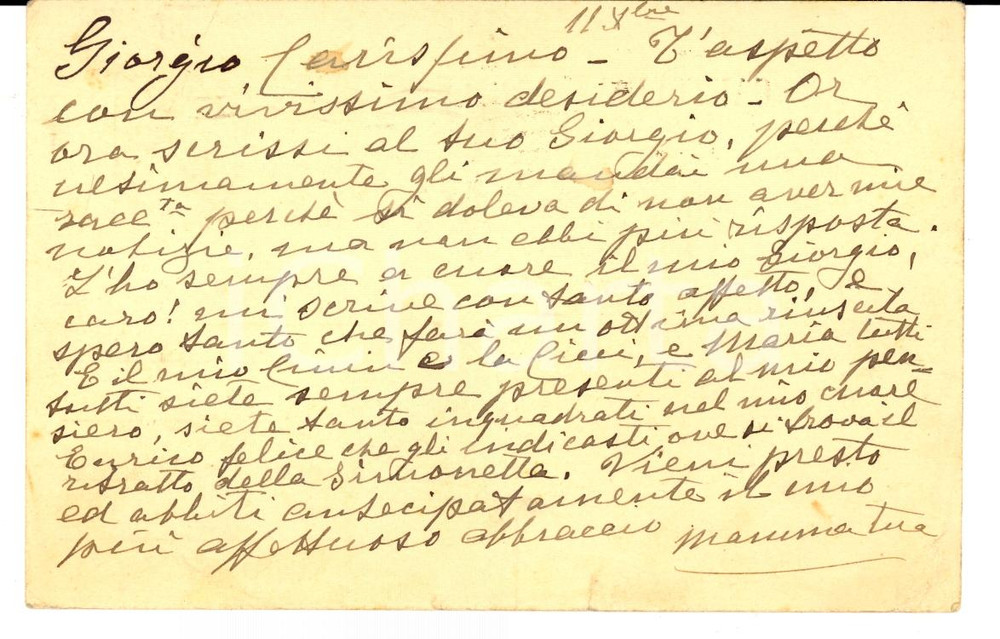 11 Xbre
Giorgio Carissimo - T'aspetto
con vivissimo desiderio - Or
ora scrissi al tuo Giorgio, perchè
ultimamente gli mandai una
racc.ta perchè si doleva di non aver mie
notizie, ma non ebbi più risposta.
L'ho sempre a cuore il mio Giorgio,
caro! mi scrive con tanto affetto, e
spero tanto che farà un ottima riuscita
E il mio e la Cicci, e Maria tutti
tutti siete sempre presenti al mio pen=
siero, siete tanto inquadrati nel mio cuore
Enrico felice che gli indicasti ove si trova il
ritratto della Simonetta. Vieni presto
ed abbiti anticipatamente il mio
più affettuoso abbraccio mamma tua